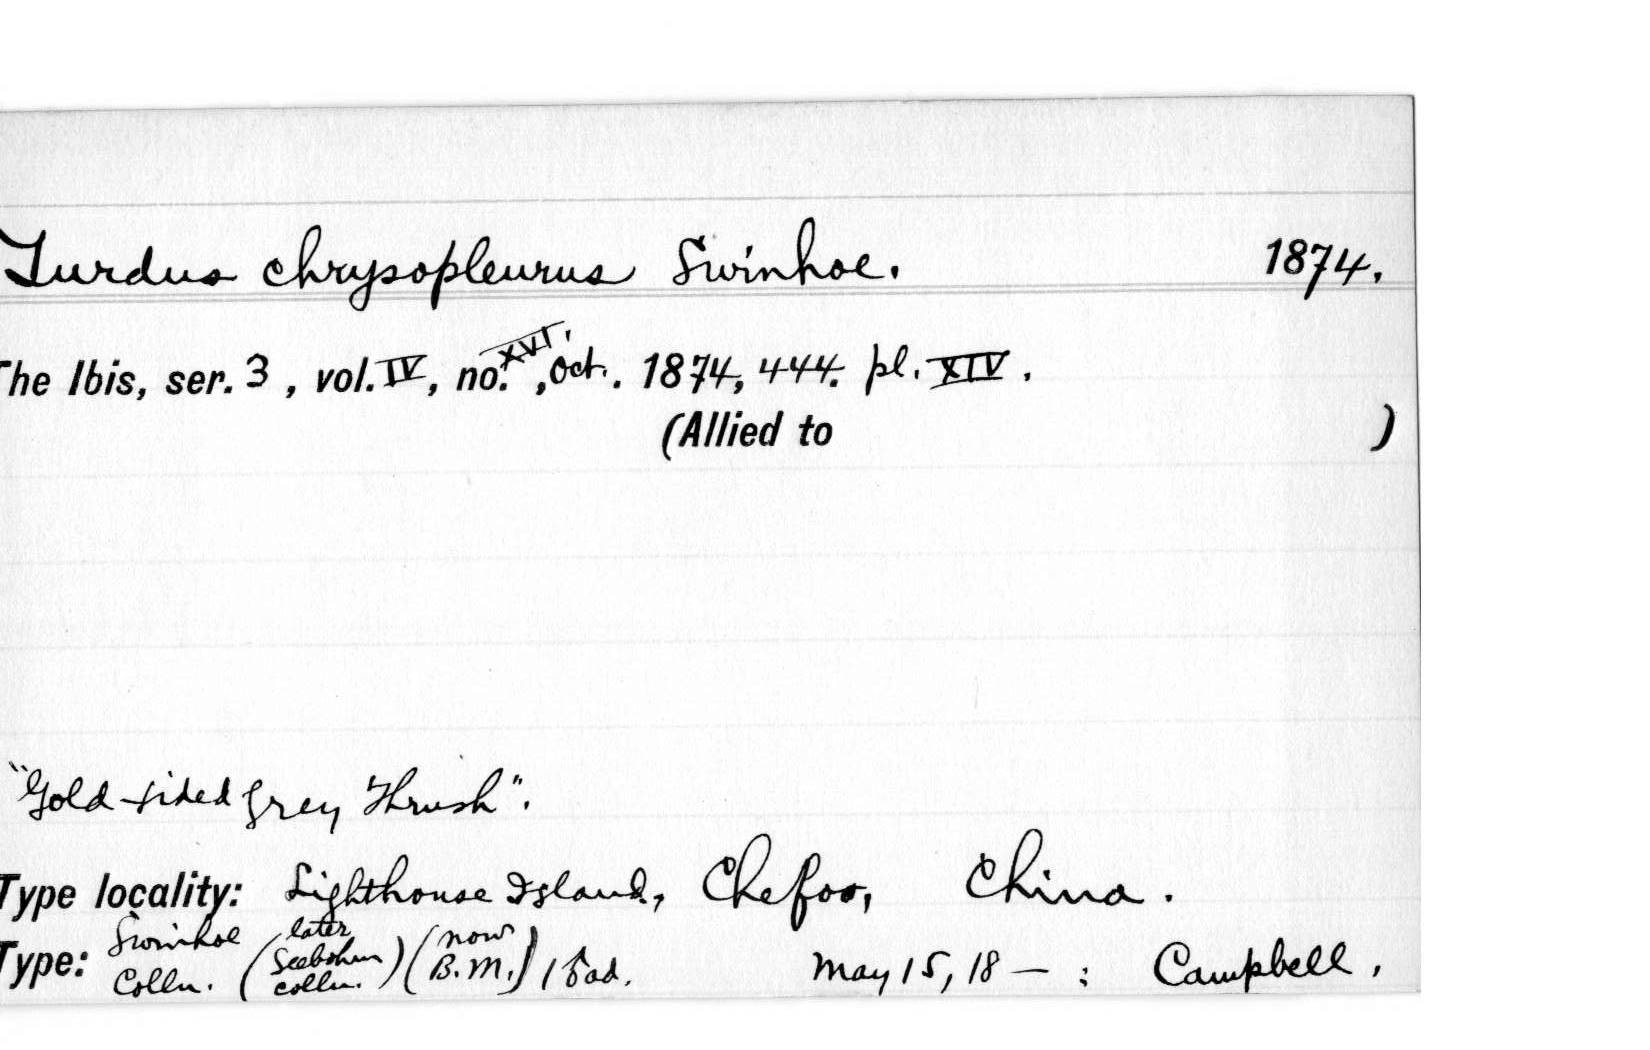 Turdus chrysopleurus Swinhoe. 1874.
The Ibis, ser. 3, vol. IV, no. XVI., Oct. 1874, 444. pl. XIV.
(Allied to )
"Gold-sided Grey Thrush".
Type locality: Lighthouse Island, Chefoo, China.
Type: Swinhoe Colln. (later Seebohm colln.) (now B.M.) 1 ♂ad. May 15, 18 — : Campbell.